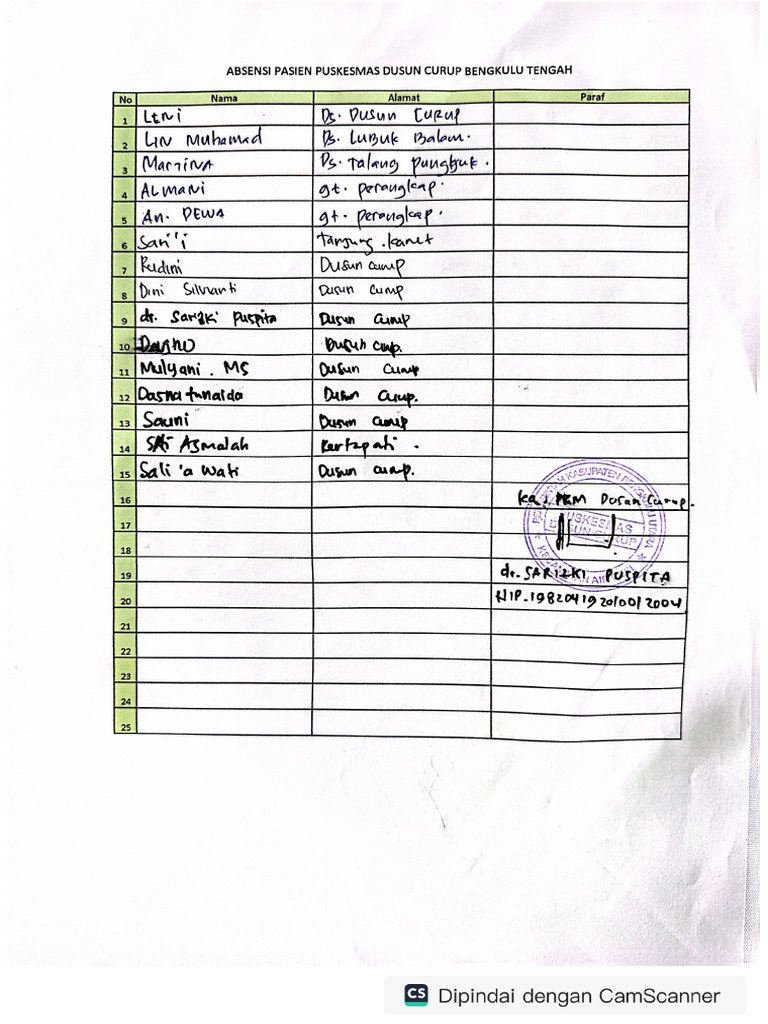 ABSENSI PASIEN PUSKESMAS DUSUN CURUP BENGKULU TENGAH
No Nama Alamat Paraf
1 LENI Ds. Dusun Curup
2 LIN Muhamad Ds. Lubuk Balam.
3 MARTINA Ds. Talang Pungguk.
4 ALMANI gt. perangkap.
5 An. DEWA gt. perangkap.
6 Sari'i Tanjung .karet
7 Rudini Dusun curup
8 Dini Silvianti Dusun curup
9 dr. Sarizki Puspita Dusun Curup
10 Dusun curup.
11 Mulyani . MS Dusun Curup
12 Dusun Curup.
13 Sauni Dusun Curup
14 Siti Asmalah Kertapati .
15 Sali 'a Wati Dusun curup.
16 Ka. PKM Dusun Curup.
17 PUSKESMAS
18 DUSUN CURUP
19 dr. SARIZKI PUSPITA
20 NIP. 198204192010012004
21
22
23
24
25
CS Dipindai dengan CamScanner